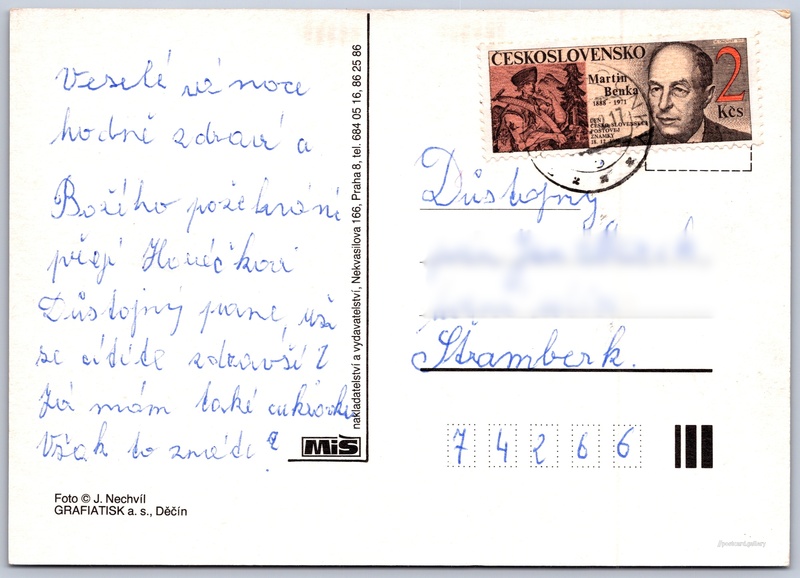 Veselé vánoce
hodně zdraví a
Božího požehnání
přejí Horečkovi
Důstojný pane, už
se cítíte zdravší?
Já mám také cukrovku
Však to znáte?
nakladatelství a vydavatelství, Nekvasilova 166, Praha 8, tel. 684 05 16, 86 25 86
MíŠ
Foto © J. Nechvíl
GRAFIATISK a. s., Děčín
ČESKOSLOVENSKO
Martin
Benka
1888 - 1971
DEŇ
ČESKO-SLOVENSKEJ
POŠTOVEJ
ZNÁMKY
18. 12.
2
Kčs
Důstojný
Štramberk.
74266